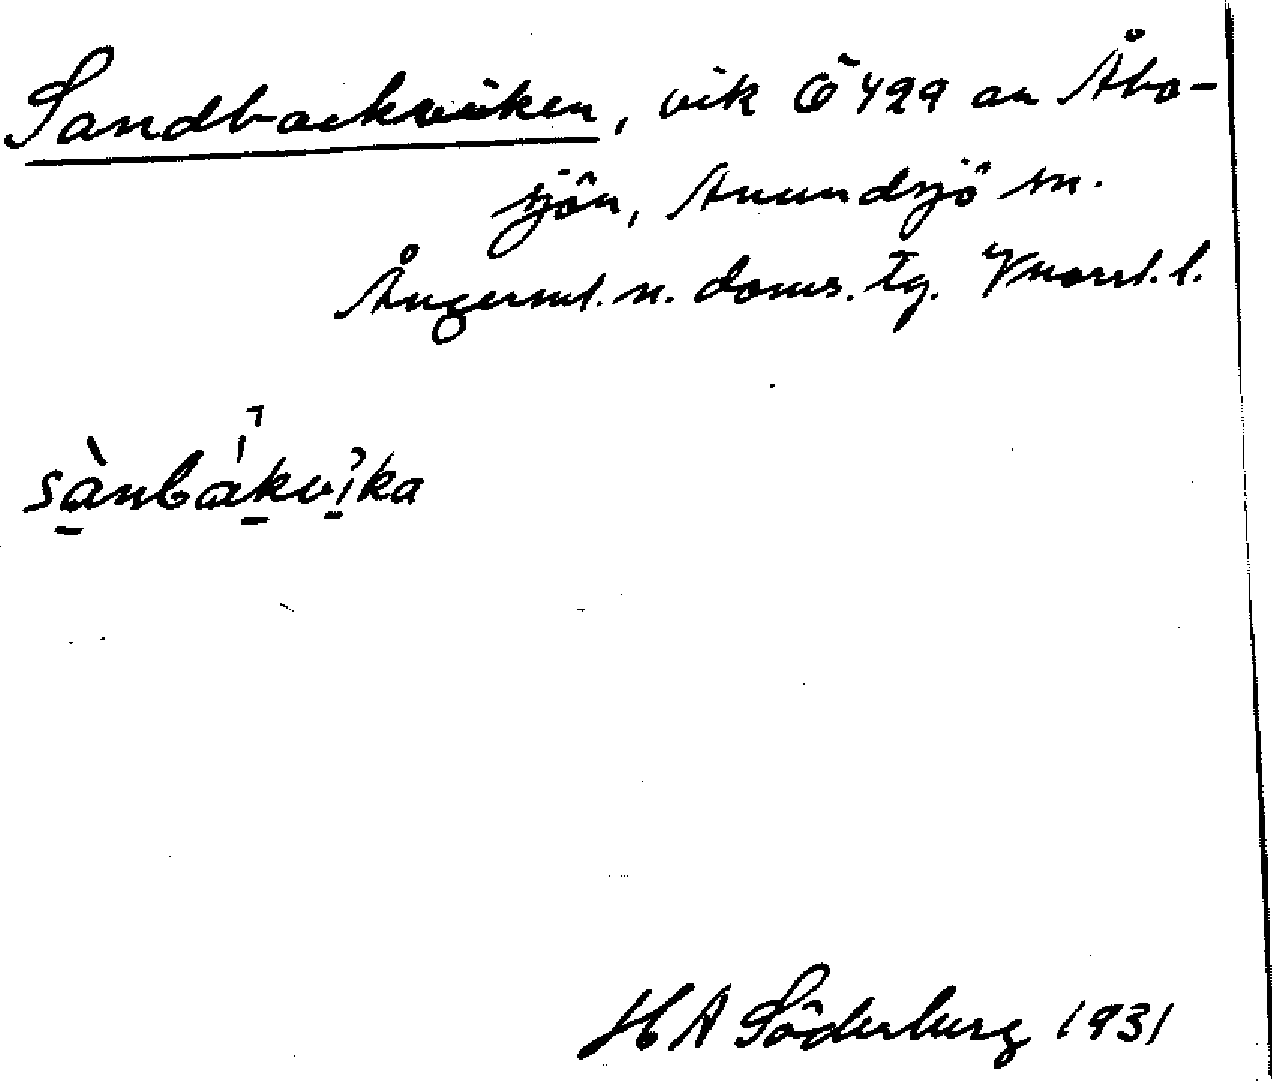 Sandbackviken, vik Ö 429 av Åbo-
sjön, Anundsjö sn.
Ångerml. n. doms. tg. Vnorrl. l.
sànbákvika
H A Söderberg 1931